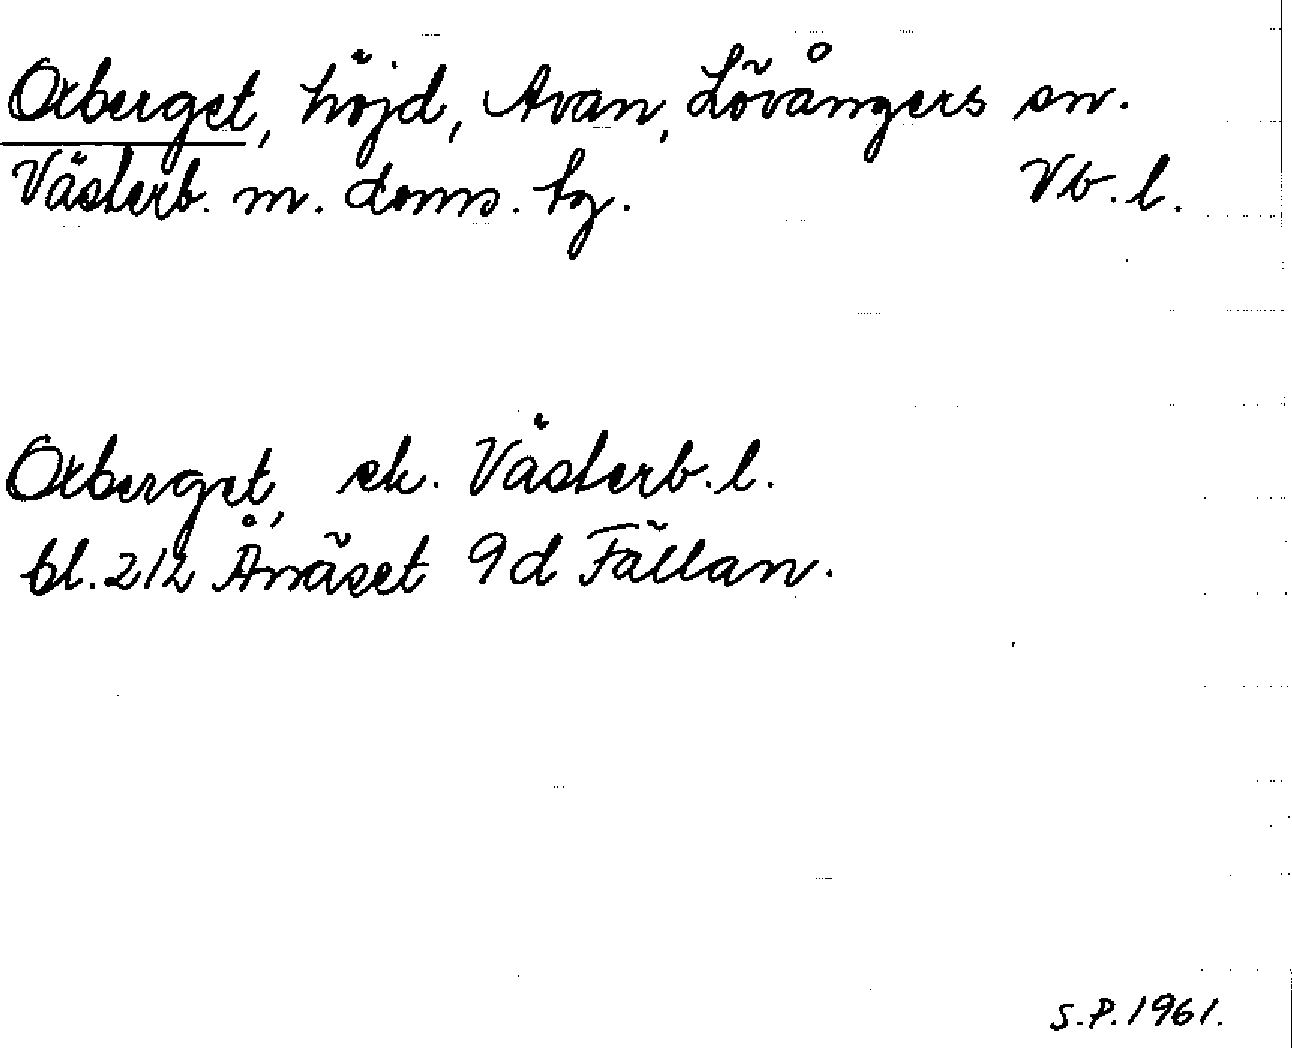 Oxberget, höjd, Avan, Lövångers sn.
Västerb. m. doms. tg. Vb. l.
Oxberget, ek. Västerb. l.
bl. 212 Ånäset 9d Fällan.
S.P. 1961.